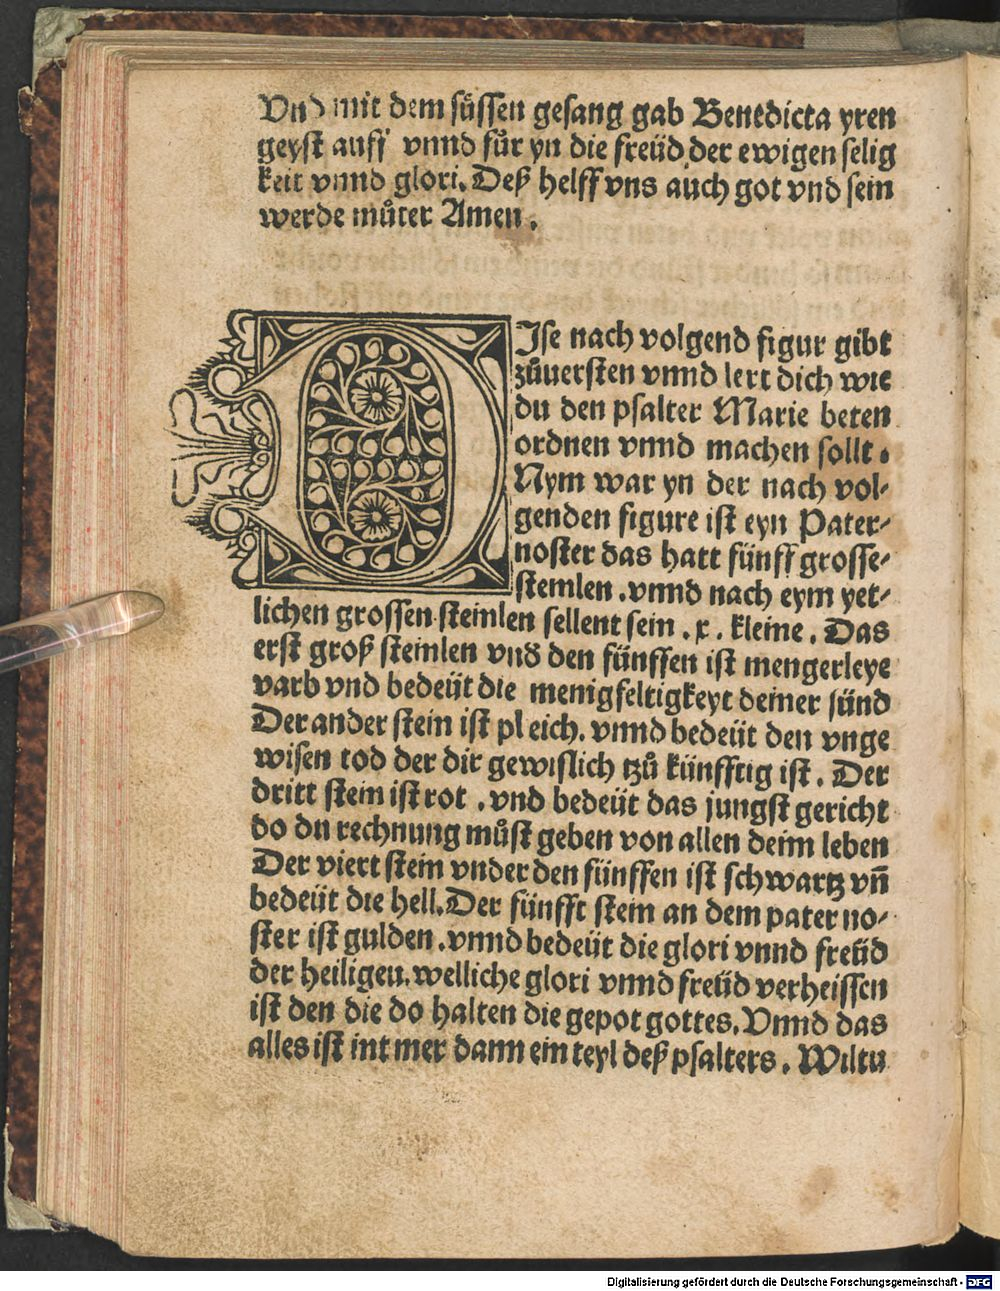 Vnd mit dem süssen gesang gab Benedicta yren
geyst auff vnnd fůr yn die freüd der ewigen selig
keit vnnd glori. Deß helff vns auch got vnd sein
werde můter Amen.
DIse nach volgend figur gibt
zůuersten vnnd lert dich wie
du den psalter Marie beten
ordnen vnnd machen sollt.
Nym war yn der nach vol⸗
genden figure ist eyn Pater⸗
noster das hatt fünff grosse⸗
stemlen. vnnd nach eym yet⸗
lichen grossen steinlen sellent sein. x. kleine. Das
erst groß steinlen vnd den fünffen ist mengerleye
varb vnd bedeüt die menigfeltigkeyt deiner sünd
Der ander stein ist pleich. vnnd bedeüt den vnge
wisen tod der dir gewislich tzů künfftig ist. Der
dritt stein ist rot. vnd bedeüt das jungst gericht
do du rechnung můst geben von allen deim leben
Der viert stein vnder den fünffen ist schwartz vñ
bedeüt die hell. Der fünfft stein an dem pater no⸗
ster ist gulden. vnnd bedeüt die glori vnnd freüd
der heiligen. welliche glori vnnd freüd verheissen
ist den die do halten die gepot gottes. Vnnd das
alles ist int mer dann ein teyl deß psalters. Wiltu
Digitalisierung gefördert durch die Deutsche Forschungsgemeinschaft - DFG